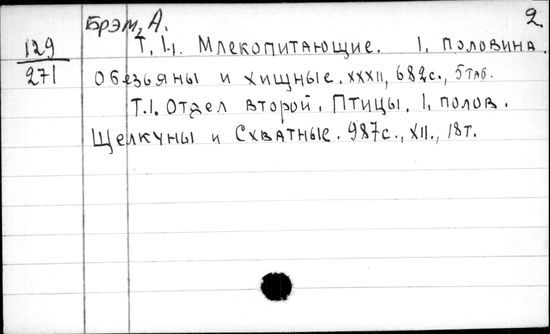 Брэм, А. 2
129 Т. I. Млекопитающие. I. половина.
271 Обезьяны и хищные. XXXII, 682с., 5таб.
Т.I. Отдел второй. Птицы. I. полов.
Щелкуны и Схватные. 987с., XII., 18т.